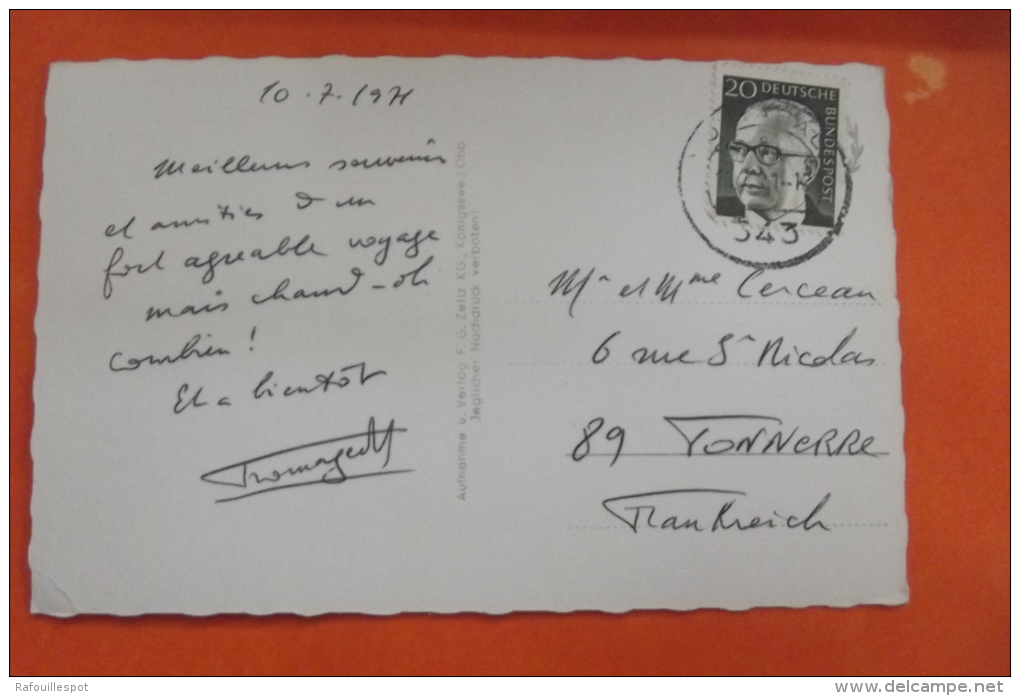 10.7.1971
Meilleurs souvenirs
et amitiés d'un
fort agreable voyage
mais chaud - oh
combien!
Et a bientôt
Aufnahme u. Verlag F. G. Zeitz KG., Königssee/Obb.
Jeglicher Nachdruck verboten!
20 DEUTSCHE
BUNDESPOST
543
Mr et Mme Cerceau
6 rue St Nicolas
89 TONNERRE
Frankreich
Rafouillespot
www.delcampe.net